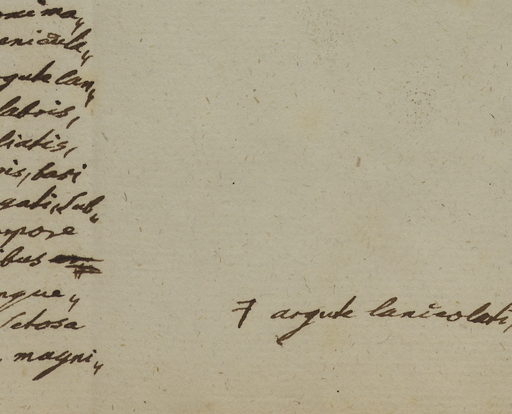 oxima„
enicula„
rgute lan„
labris,
liatis,
ris, basi
gati, sub„
rpore
ibus
ngue„
Setosa
magni„
7 argute lanceolati,